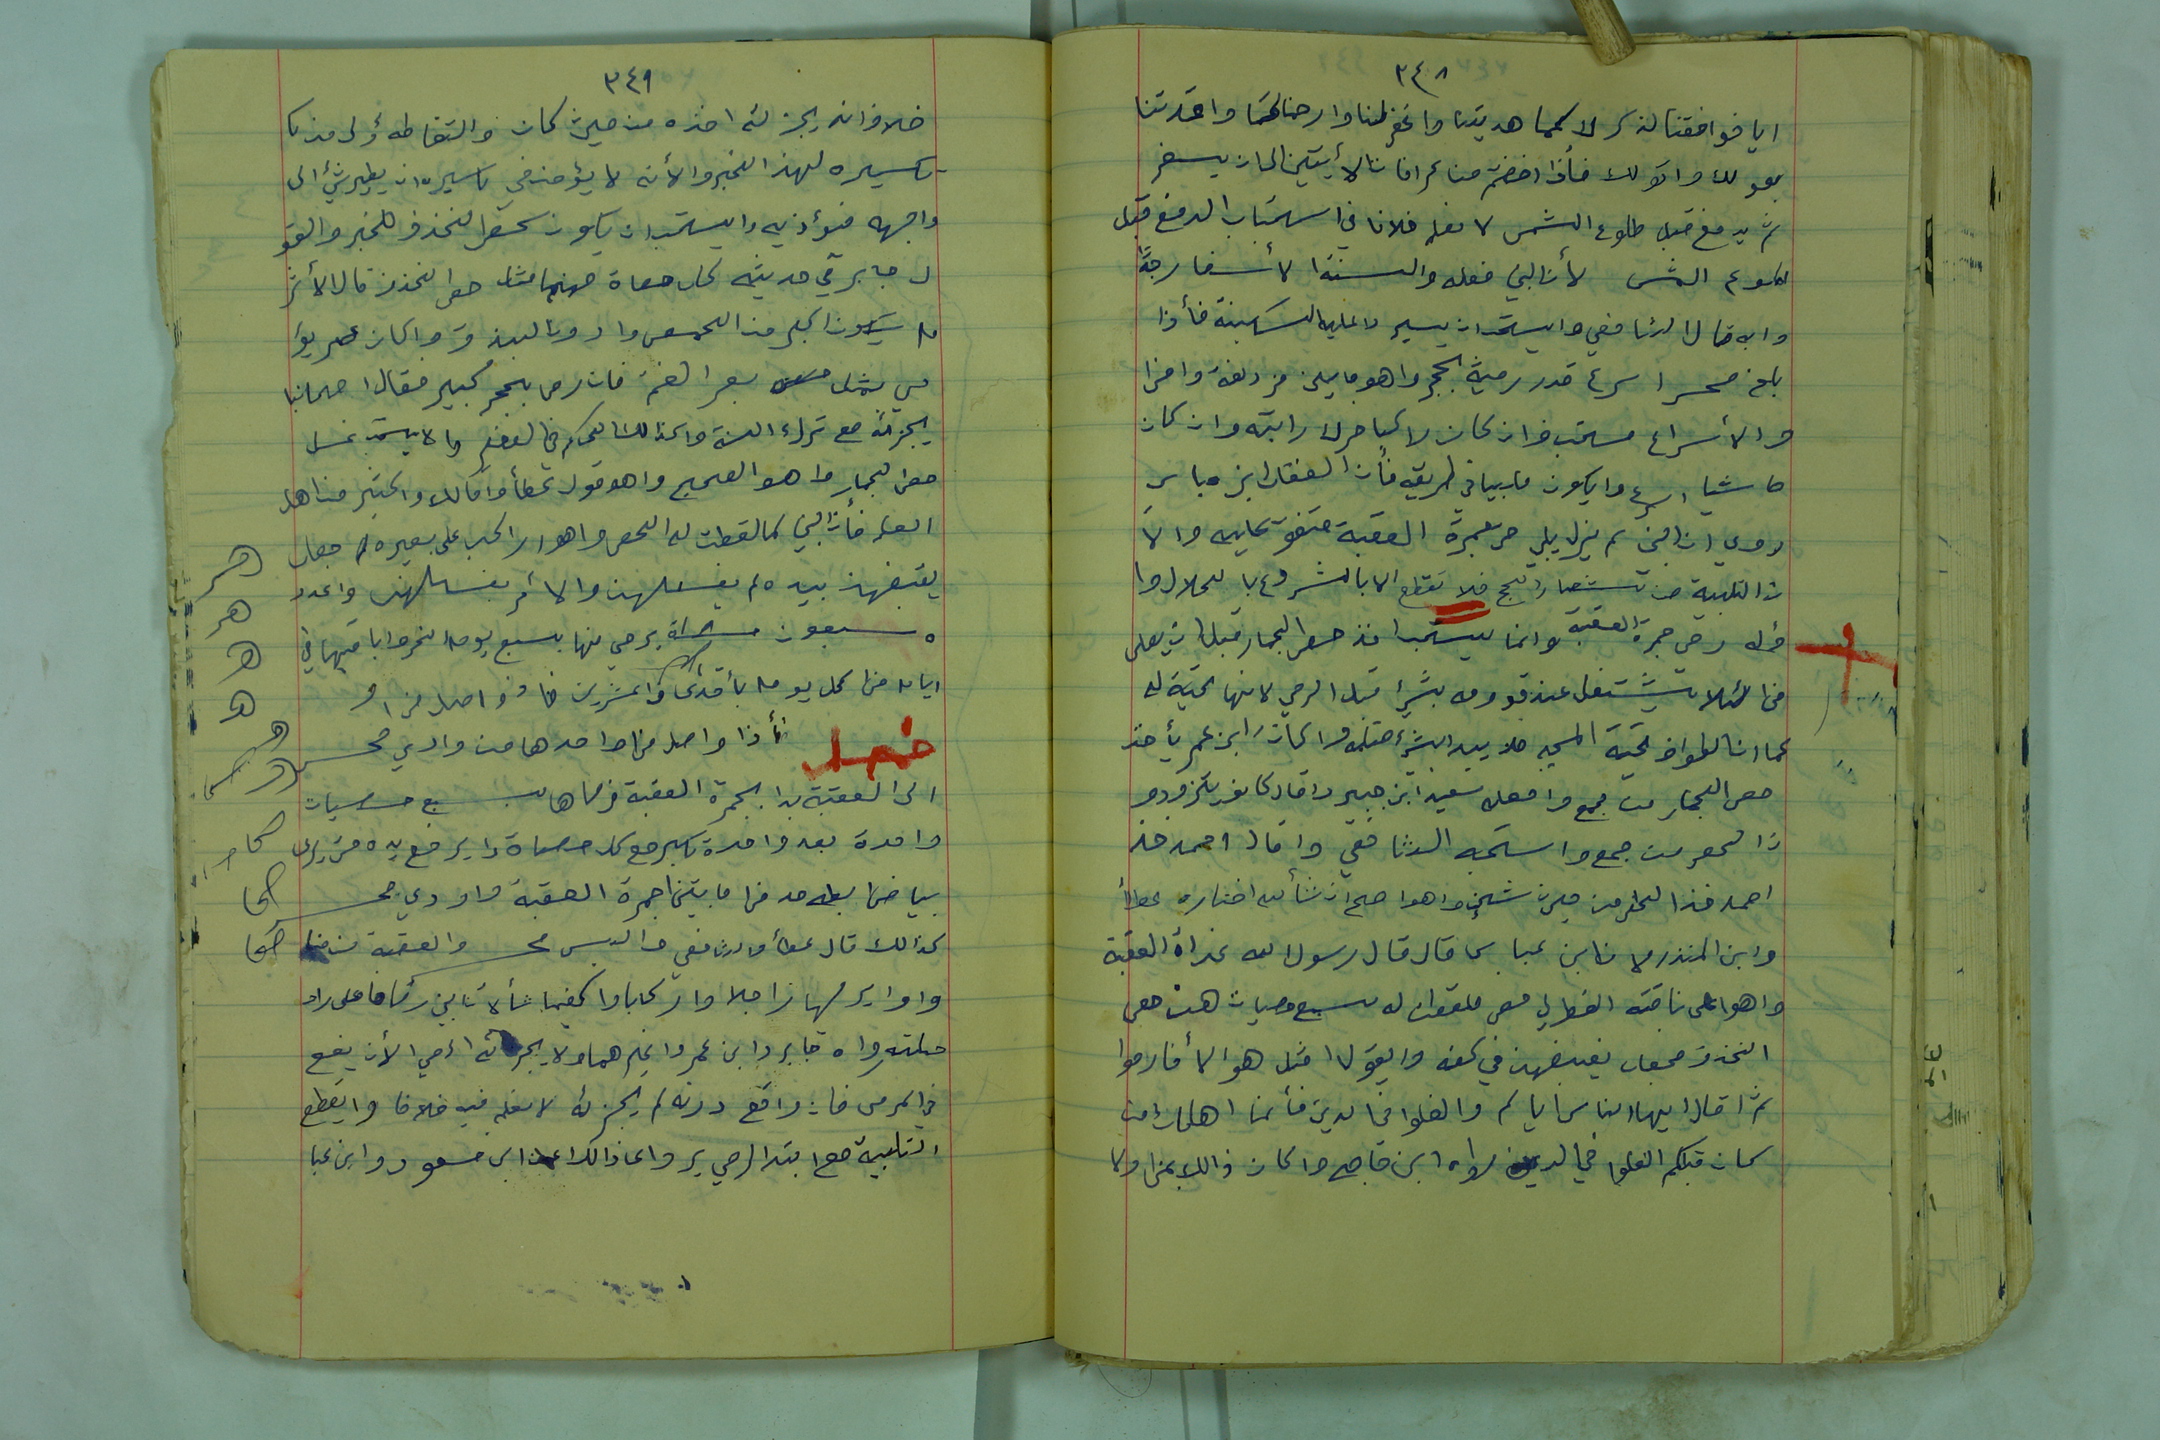 ٣٤٨
ايا فوافقنا لذكر لا كما هديتنا واغفر لنا وارحمنا كما واعدتنا
بقولك وقولك فأذا افضتم من عرافات الأيتين الى ان يسفر
ثم يدفع قبل طلوع الشمس لا نعلم خلافا في استحباب الدفع قبل
طلوع الشمس لأن النبي فعله والسنة الأسفار جدًا
وابه قال الشافعي وايستحب ان يسير واعليه السكينة فأذا
بلغ محسرا اسرع قدر رمية بحجر واهو مابين مزدلفة وامنا
والأسراع مستحب فأن كان راكبا حرك دابته وان كان
ماشيا اسرع وايكون ملبيا في طريقه فأن الفضل ابن عباس
روى ان النبي لم يزل يلبي حتى جمرة العقبة متفق عليه والا
ن التلبية من شعار الحج فلا تقطع الا بالشروع بالحلال وا
وله رمي جمرة العقبة وانما يستحب اخذ حصى الجمار قبل ان يصلى
منا لئلا يشتغل عند قدومه بشئ قبل الرمي لانها تحية له
كما ان الطواف تحية المسجد فلا يبدا بشئ قبله واكان ابن عمر يأخذ
حصى الجمار من جمع وافعله سعيد ابن جبير واقال كانو يتزودو
ن الحصى من جمع واستحبه الشافعي واقال احمد خذ
احمد خذ الحصى من حيث شئت واهوا صح ان شأ الله اختاره عطأ
وابن المنذر لان ابن عباس قال قال رسول الله غداة العقبة
واهوا على ناقته القط لي حصى فلقطت له سبع حصيات هن حصى
الخذف فجعل يقبضهن في كفه وايقولا مثل هوالأ فارموا
ثم اقال ايها الناس اياكم والغلوا في الدين فأنما اهلك من
كان قبلكم الغلوا في الدين رواه ابن ماجه واكان ذالك بمنا ولا
٣٤٩
خلاف انه يجزئه اخذه من حيث كان والتقاطه أولى من تا
تكسيره لهذا الخبر والأنه لا يؤمن في تكسيره ان يطير شئ الى
واجهه فيؤذيه وايستحب ان تكون كحصى الخذف للخبر والقو
ل جابر في حديثه كل حصاة منها مثل حصى الخذف قال الأثر
م يكون اكبر من الحمص وادون البندق واكان ابن عمر يرا
مي بمثل بعر الغنم فأن رمى بحجر كبير فقال اصحابنا
يجزئه مع ترك السنة واكذالك الحكم في الصغير ولا يستحب غسل
حصى الجمار واهو الصحيح واهو قول عطأ وامالك واكثير من اهل
العلم فأن النبي لما لقطت له الحصى واهوا راكب على بعيره جعل
يقبضهن بيده لم يغسلهن والا أمر بغسلهن واعدد
ه سبعون حصاة يرمي منها بسبع يوم النحر واباقيها في
ايام منا كل يوم بأحدى واعشرين
فصل فأذا واصل منا واحدها من وادي محسر
الى العقبة بدا بجمرة العقبة فرماها بسبع حصيات
واحدة بعد واحدة يكبر مع كل حصاة وايرفع يده حتى يرى
بياض ابطه وحد منا مابين جمرة العقبة ووادي محسر
كذالك قال عطأ والشافعي واليس محسر والعقبة من منا
واوا يرميها راجلا واراكبا واكيفما شأ لان النبي رماها على را
حلته رواه جابر وابن عمر واغيرهما ولا يجزئه الرمي الأ ان يقع
في المرمى فأن واقع دونه لم يجزئه لا نعلم فيه خلافا وايقطع
التلبية مع ابتدا الرمي يروا عن ذالك ابن مسعود وابن عبا
هـ
هـ
هـ
هـ